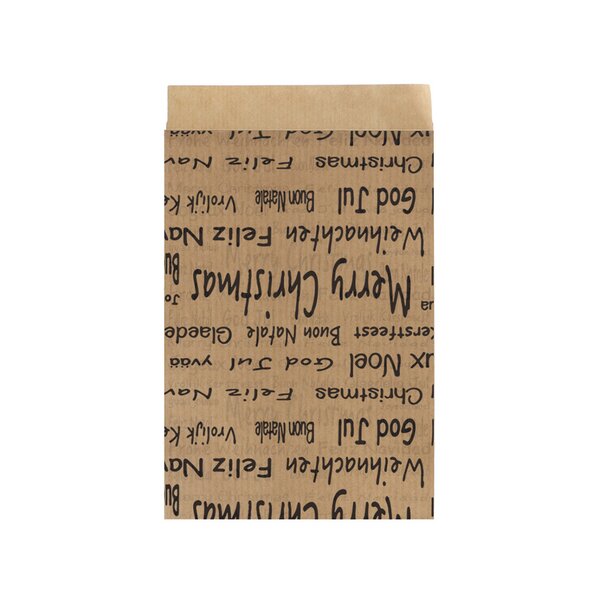 Merry Christmas Bu
Weihnachten Feliz Nav
God Jul Buon Natale Vrolijk Ke
Christmas Feliz Nav
ux Noel God Jul yvää
erstfeest Buon Natale Glaede
Merry Christmas Bu
Weihnachten Feliz Nav
God Jul Buon Natale Vrolijk Ke
Christmas Feliz Nav
ux Noel God Jul yvää